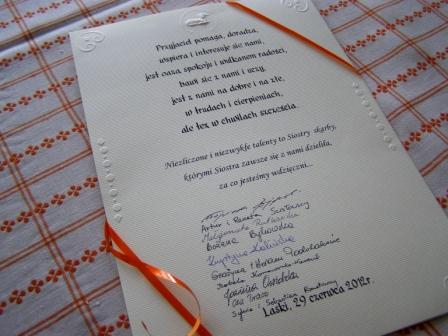 Przyjaciel pomaga, doradza,
wspiera i interesuje się nami,
jest oazą spokoju i wulkanem radości,
bawi się z nami i uczy,
jest z nami na dobre i na złe,
w trudach i cierpieniach,
ale też w chwilach szczęścia.
Niezliczone i niezwykłe talenty to Siostry skarby,
którymi Siostra zawsze się z nami dzieliła,
za co jesteśmy wdzięczni...
Artur i Renata
Małgorzata
Bożena Bykowska
Krystyna
Grażyna i
Sylwia i Sebastian
Laski, 29 czerwca 2012r.